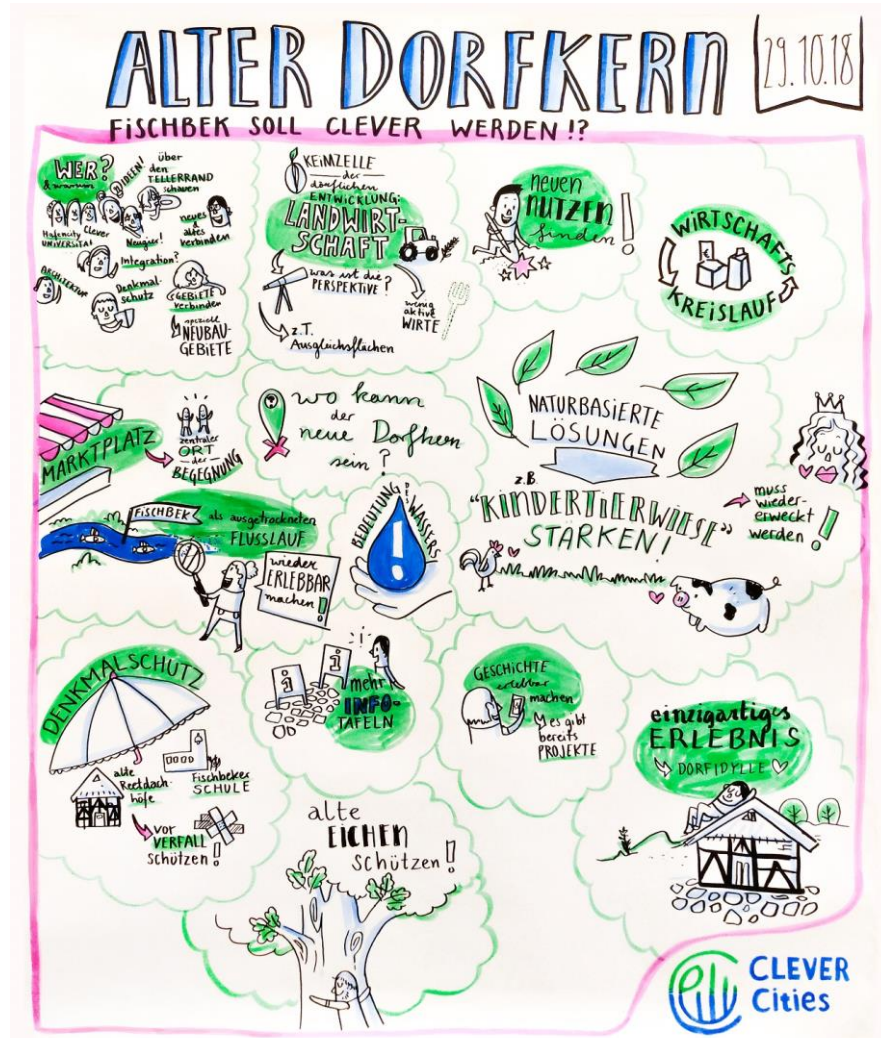 ALTER DORFKERN
29.10.18
FISCHBEK SOLL CLEVER WERDEN!?
WER?
& warum
IDEEN!
über
den
TELLERRAND
schauen
Hafencity
UNIVERSITÄT
Clever
Neugier!
neues
altes
verbinden
Integration?
ARCHITEKTUR
Denkmal-
schutz
GEBIETE
verbinden
spezielle
NEUBAU-
GEBIETE
KEIMZELLE
der
dörflichen
ENTWICKLUNG:
LANDWIRT-
SCHAFT
was ist die
PERSPEKTIVE?
wenig
aktive
WIRTE
z.T.
Ausgleichsflächen
neuen
NUTZEN
finden!
WIRTSCHAFTS
KREISLAUF
€
MARKTPLATZ
zentraler
ORT
der
BEGEGNUNG
wo kann
der
neue Dorfkern
sein?
NATURBASIERTE
LÖSUNGEN
z.B.
"KINDERTIERWIESE"
STÄRKEN!
muss
wieder-
erweckt
werden!
FISCHBEK
als ausgetrockneten
FLUSSLAUF
wieder
ERLEBBAR
machen!
BEDEUTUNG DES WASSERS
!
DENKMALSCHUTZ
alte
Reetdach-
höfe
Fischbeker
SCHULE
vor
VERFALL
schützen!
i
i
i
mehr
INFO-
TAFELN
GESCHICHTE
erlebbar
machen
es gibt
bereits
PROJEKTE
einzigartiges
ERLEBNIS
DORFIDYLLE
alte
EICHEN
schützen!
CLEVER
Cities